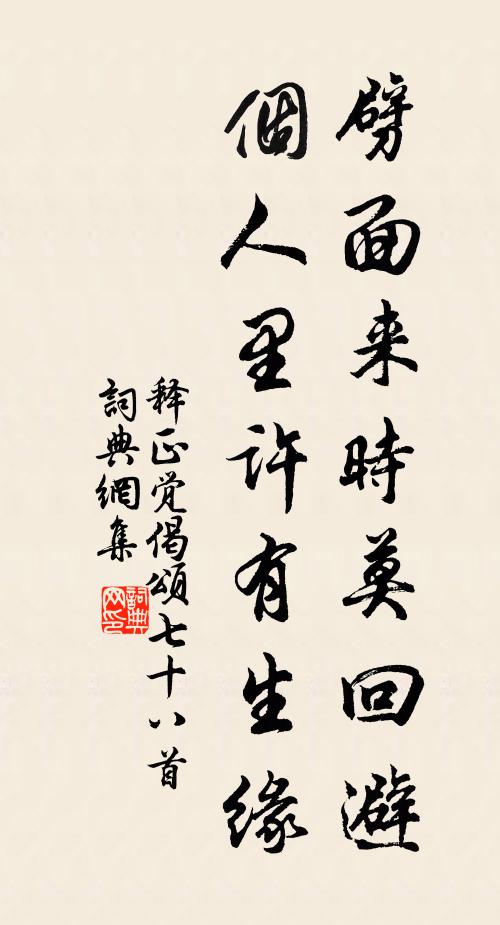 劈面来時莫回避
個人里许有生緣
释正觉偈頌七十八首
詞典網集
詞典
网印